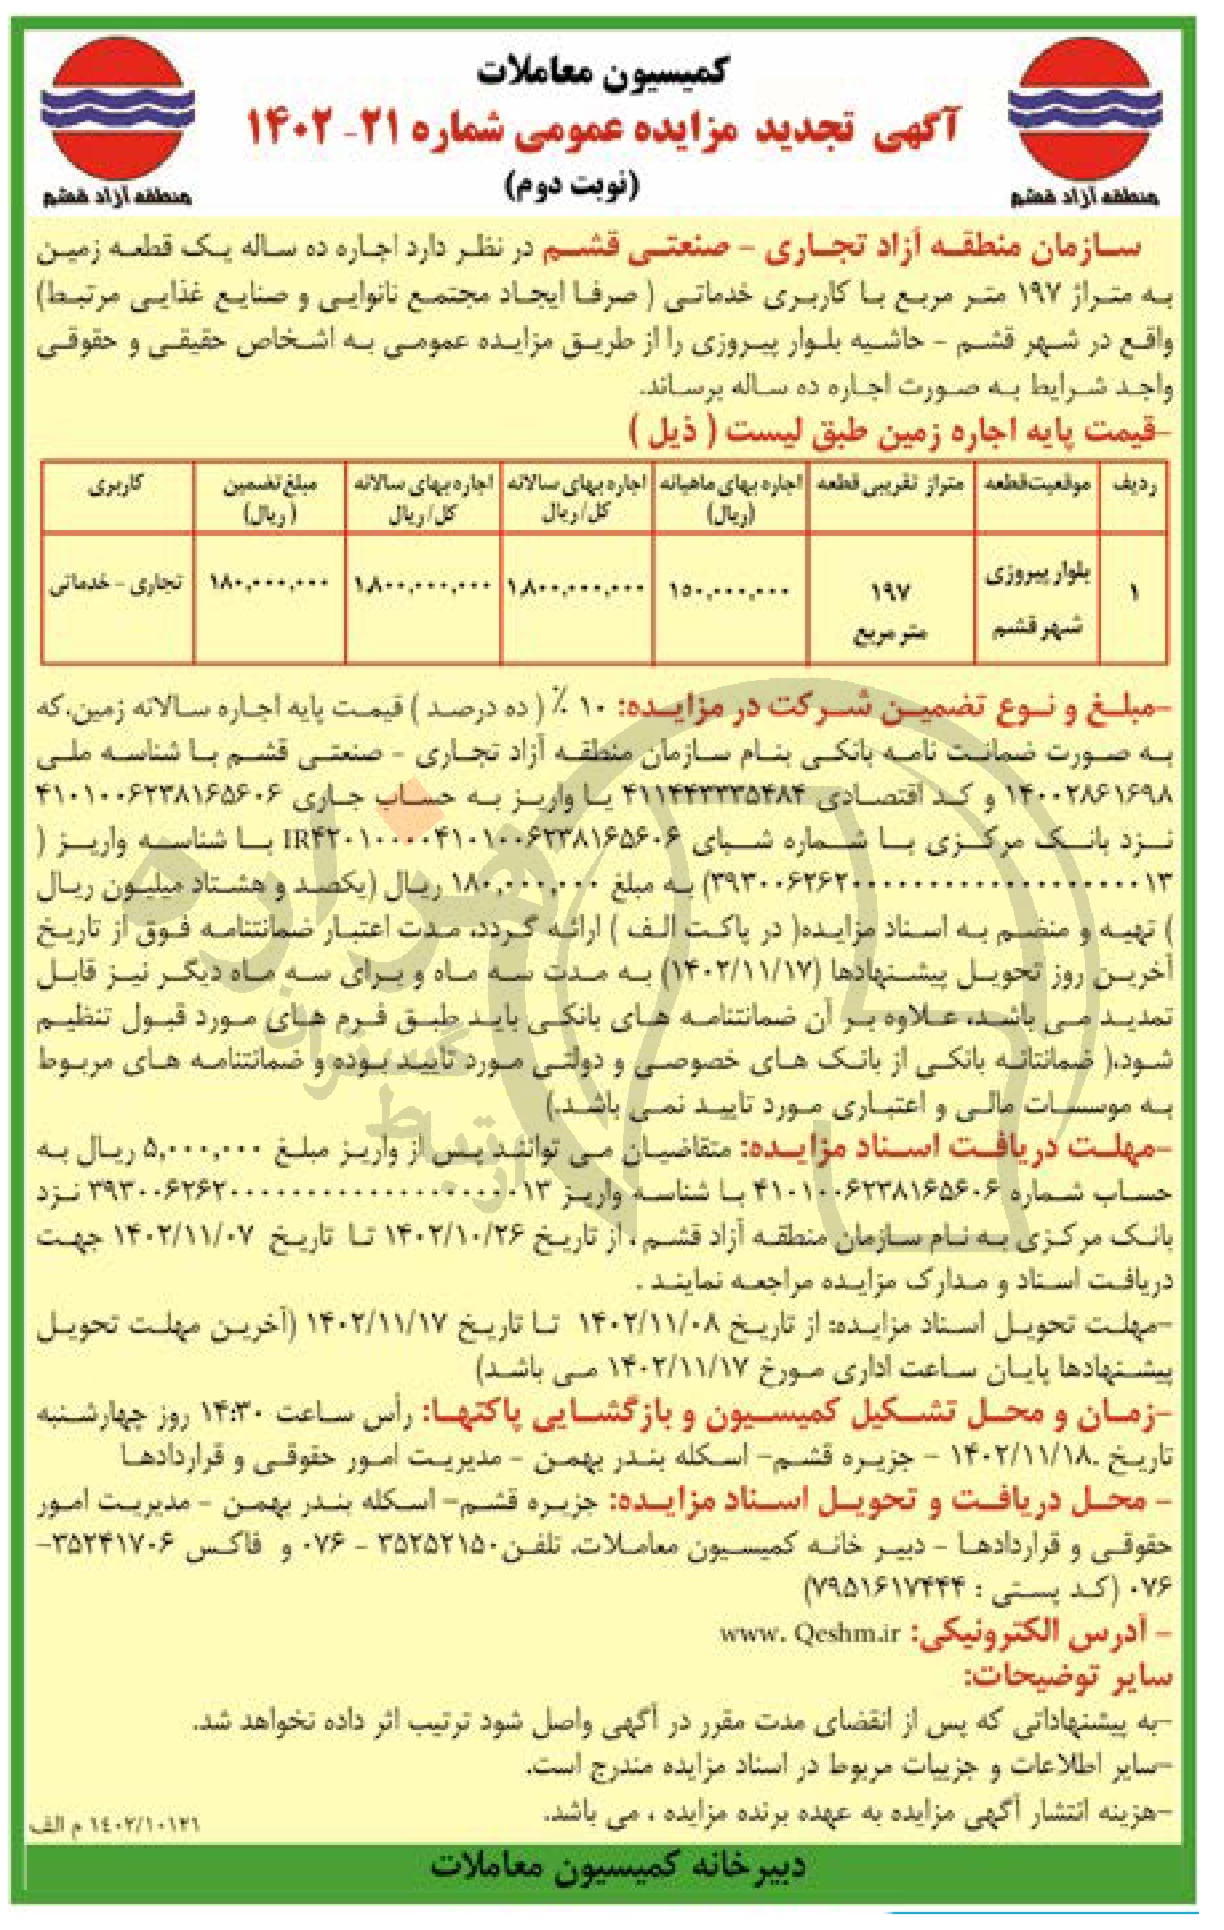 کمیسیون معاملات
آگهی تجدید مزایده عمومی شماره ۲۱- ۱۴۰۲
(نوبت دوم)
منطقه آزاد قشم
منطقه آزاد قشم
سازمان منطقه آزاد تجاری - صنعتی قشم در نظر دارد اجاره ده ساله یک قطعه زمین
به متراژ ۱۹۷ متر مربع با کاربری خدماتی ( صرفا ایجاد مجتمع نانوایی و صنایع غذایی مرتبط)
واقع در شهر قشم - حاشیه بلوار پیروزی را از طریق مزایده عمومی به اشخاص حقیقی و حقوقی
واجد شرایط به صورت اجاره ده ساله برساند.
-قیمت پایه اجاره زمین طبق لیست ( ذیل )
ردیف موقعیت قطعه متراژ تقریبی قطعه اجاره بهای ماهیانه (ریال) اجاره بهای سالانه کل/ریال اجاره بهای سالانه کل/ریال مبلغ تضمین (ریال) کاربری
۱ بلوار پیروزی شهر قشم ۱۹۷ متر مربع ۱۵۰,۰۰۰,۰۰۰ ۱,۸۰۰,۰۰۰,۰۰۰ ۱,۸۰۰,۰۰۰,۰۰۰ ۱۸۰,۰۰۰,۰۰۰ تجاری - خدماتی
-مبلغ و نوع تضمین شرکت در مزایده: ۱۰ ٪ ( ده درصد ) قیمت پایه اجاره سالانه زمین،که
به صورت ضمانت نامه بانکی بنام سازمان منطقه آزاد تجاری - صنعتی قشم با شناسه ملی
۱۴۰۰۲۸۶۱۶۹۸ و کد اقتصادی ۴۱۱۴۴۳۳۳۵۴۸۴ یا واریز به حساب جاری ۴۱۰۱۰۰۶۲۳۸۱۶۵۶۰۶
نزد بانک مرکزی با شماره شبای IR۴۲۰۱۰۰۰۰۴۱۰۱۰۰۶۲۳۸۱۶۵۶۰۶ با شناسه واریز (
۳۹۳۰۰۶۲۶۲۰۰۰۰۰۰۰۰۰۰۰۰۰۰۰۰۰۰۰۱۳) به مبلغ ۱۸۰,۰۰۰,۰۰۰ ریال (یکصد و هشتاد میلیون ریال
) تهیه و منضم به اسناد مزایده( در پاکت الف ) ارائه گردد، مدت اعتبار ضمانتنامه فوق از تاریخ
آخرین روز تحویل پیشنهادها (۱۴۰۲/۱۱/۱۷) به مدت سه ماه و برای سه ماه دیگر نیز قابل
تمدید می باشد، علاوه بر آن ضمانتنامه های بانکی باید طبق فرم های مورد قبول تنظیم
شود.( ضمانتانه بانکی از بانک های خصوصی و دولتی مورد تایید بوده و ضمانتنامه های مربوط
به موسسات مالی و اعتباری مورد تایید نمی باشد.)
-مهلت دریافت اسناد مزایده: متقاضیان می توانند پس از واریز مبلغ ۵,۰۰۰,۰۰۰ ریال به
حساب شماره ۴۱۰۱۰۰۶۲۳۸۱۶۵۶۰۶ با شناسه واریز ۳۹۳۰۰۶۲۶۲۰۰۰۰۰۰۰۰۰۰۰۰۰۰۰۰۰۰۰۱۳ نزد
بانک مرکزی به نام سازمان منطقه آزاد قشم ، از تاریخ ۱۴۰۲/۱۰/۲۶ تا تاریخ ۱۴۰۲/۱۱/۰۷ جهت
دریافت اسناد و مدارک مزایده مراجعه نمایند .
-مهلت تحویل اسناد مزایده: از تاریخ ۱۴۰۲/۱۱/۰۸ تا تاریخ ۱۴۰۲/۱۱/۱۷ (آخرین مهلت تحویل
پیشنهادها پایان ساعت اداری مورخ ۱۴۰۲/۱۱/۱۷ می باشد)
-زمان و محل تشکیل کمیسیون و بازگشایی پاکتها: رأس ساعت ۱۴:۳۰ روز چهارشنبه
تاریخ .۱۴۰۲/۱۱/۱۸ - جزیره قشم- اسکله بندر بهمن - مدیریت امور حقوقی و قراردادها
- محل دریافت و تحویل اسناد مزایده: جزیره قشم- اسکله بندر بهمن - مدیریت امور
حقوقی و قراردادها - دبیر خانه کمیسیون معاملات. تلفن۳۵۲۵۲۱۵۰ - ۰۷۶ و فاکس ۳۵۲۴۱۷۰۶-
۰۷۶ (کد پستی : ۷۹۵۱۶۱۷۴۴۴)
- آدرس الکترونیکی: www. Qeshm.ir
سایر توضیحات:
-به پیشنهاداتی که پس از انقضای مدت مقرر در آگهی واصل شود ترتیب اثر داده نخواهد شد.
-سایر اطلاعات و جزییات مربوط در اسناد مزایده مندرج است.
-هزینه انتشار آگهی مزایده به عهده برنده مزایده ، می باشد.
۱۴۰۲/۱۰۱۲۱ م الف
دبیرخانه کمیسیون معاملات